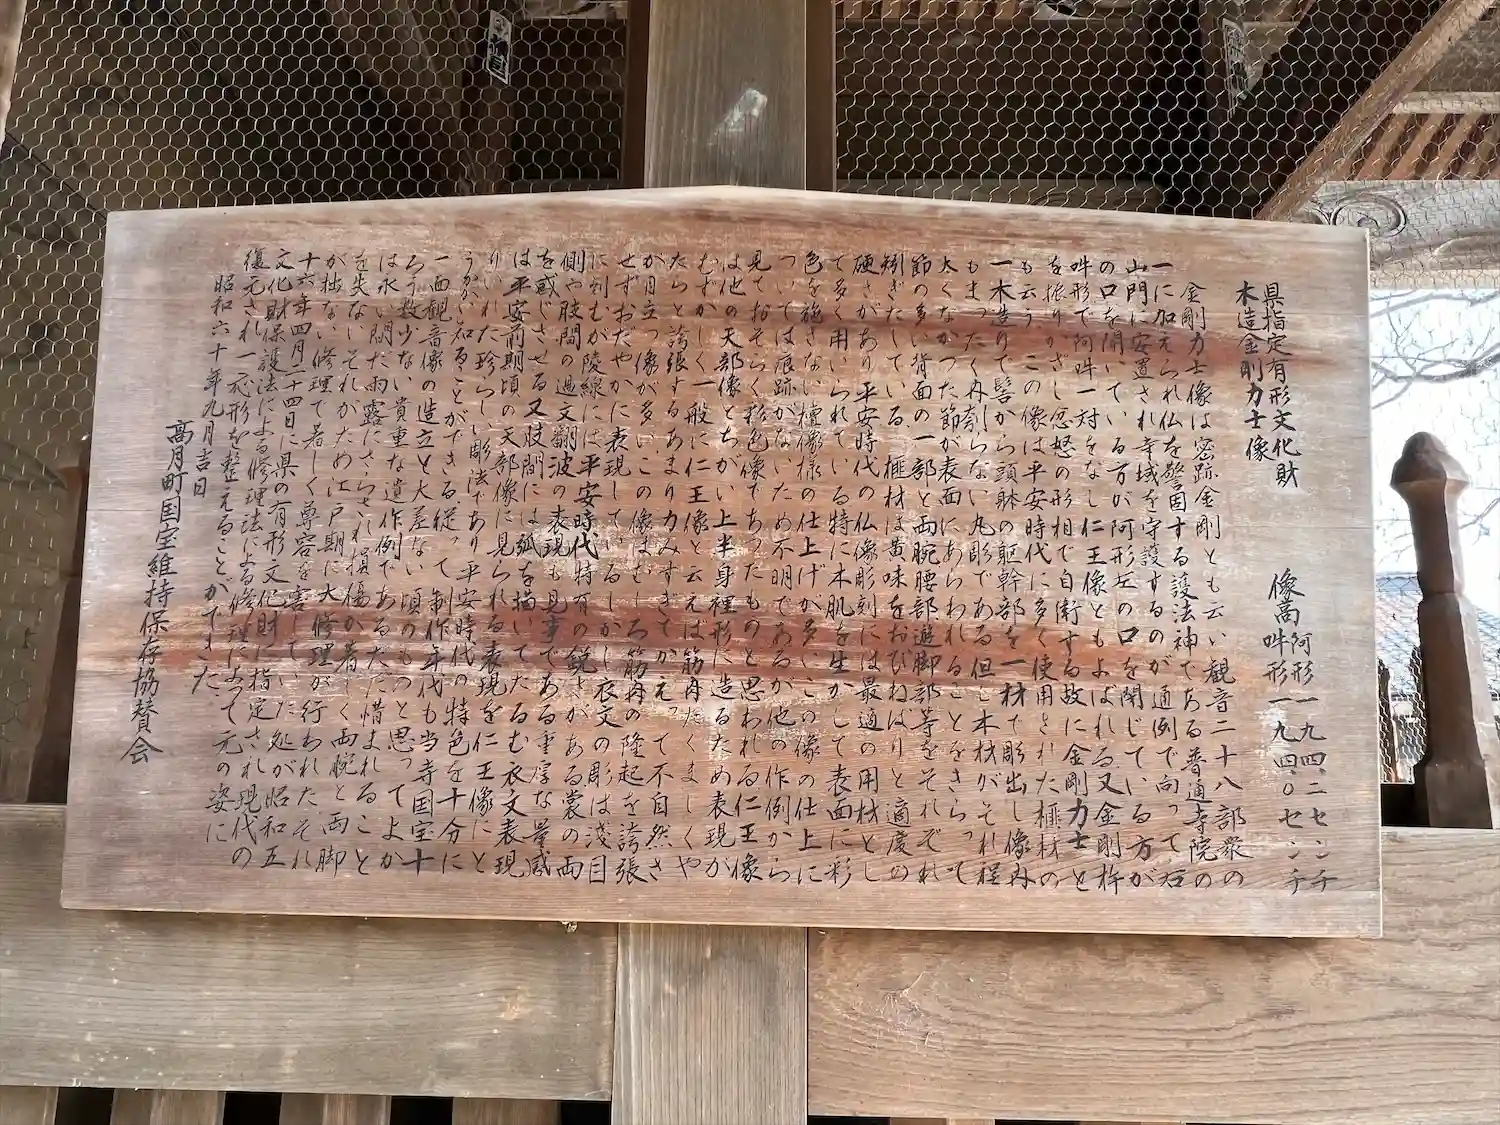 県指定有形文化財
木造金剛力士像
像高 阿形一九四、二センチ
吽形一九四、〇センチ
金剛力士像は密跡金剛とも云い観音二十八部衆の
一に加えられ仏を警固する護法神である普通寺院の
山門に安置され寺域を守護するのが通例で向って右
の口を開いている方が阿形左の口を閉じている方が
吽形で阿吽一対をなし仁王像ともよばれる又金剛杵
を振りかざし忿怒の形相で自衛する故に金剛力士と
も云うこの像は平安時代に多く使用された榧材の
一木造りで髻から頭躰の躯幹部を一材で彫出し像内
もまったく内刳らない丸彫である但し木材がそれ程
太くなかった節が表面にあらわれることをきらって
節の多い背面の一部と両腕腰部遊脚部等をそれぞれ
矧ぎだしている榧材は黄味をおびねばりと適度の
硬さがあり平安時代の仏像彫刻には最適の用材とし
て多く用いられている特に木肌を生かして表面に彩
色を施さない檀像様の仕上げが多いこの像の仕上に
ついては痕跡がないため不明であるが他の作例から
見ておそらく彩色像であったものと思われる仁王像
は他の天部像とちがい上半身裸形に造るため表現が
むずかしく一般に仁王像と云えば筋肉たくましくや
たらと誇張するあまり力みすぎてかえって不自然さ
が目立つ像が多いこの像はむしろ筋肉の隆起を誇張
せずおだやかに表現しているしかし衣文の彫は浅目
に刻むが陵線には平安時代特有の鋭さがある裳の両
側や肢間の過文翻波の表現も見事である重厚な量感
を感じさせる又肢間には弧を描いてたるむ衣文表現
は平安前期頃の天部像に見られる表現を仁王像にと
りいれた珍らしい彫法であり平安時代の特色を十分に
うかがい知ることができる従って制作年代も当寺国宝十
一面観音像の造立と大差ない頃のものと思ってよか
ろう数少ない貴重な遺作例であるただ惜まれること
は永い間た雨露にさらされ損傷が著るしく両腕と両脚
を失ないそれがため江戸期に大修理が行われたそれ
が拙ない修理で著しく尊容を害していた処が昭和五
十六年四月二十四日に県の有形文化財に指定され現代の
文化財保護法による修理法による修理によって元の姿に
復元され一応形を整えることができた
昭和六十年九月吉日
高月町国宝維持保存協賛会